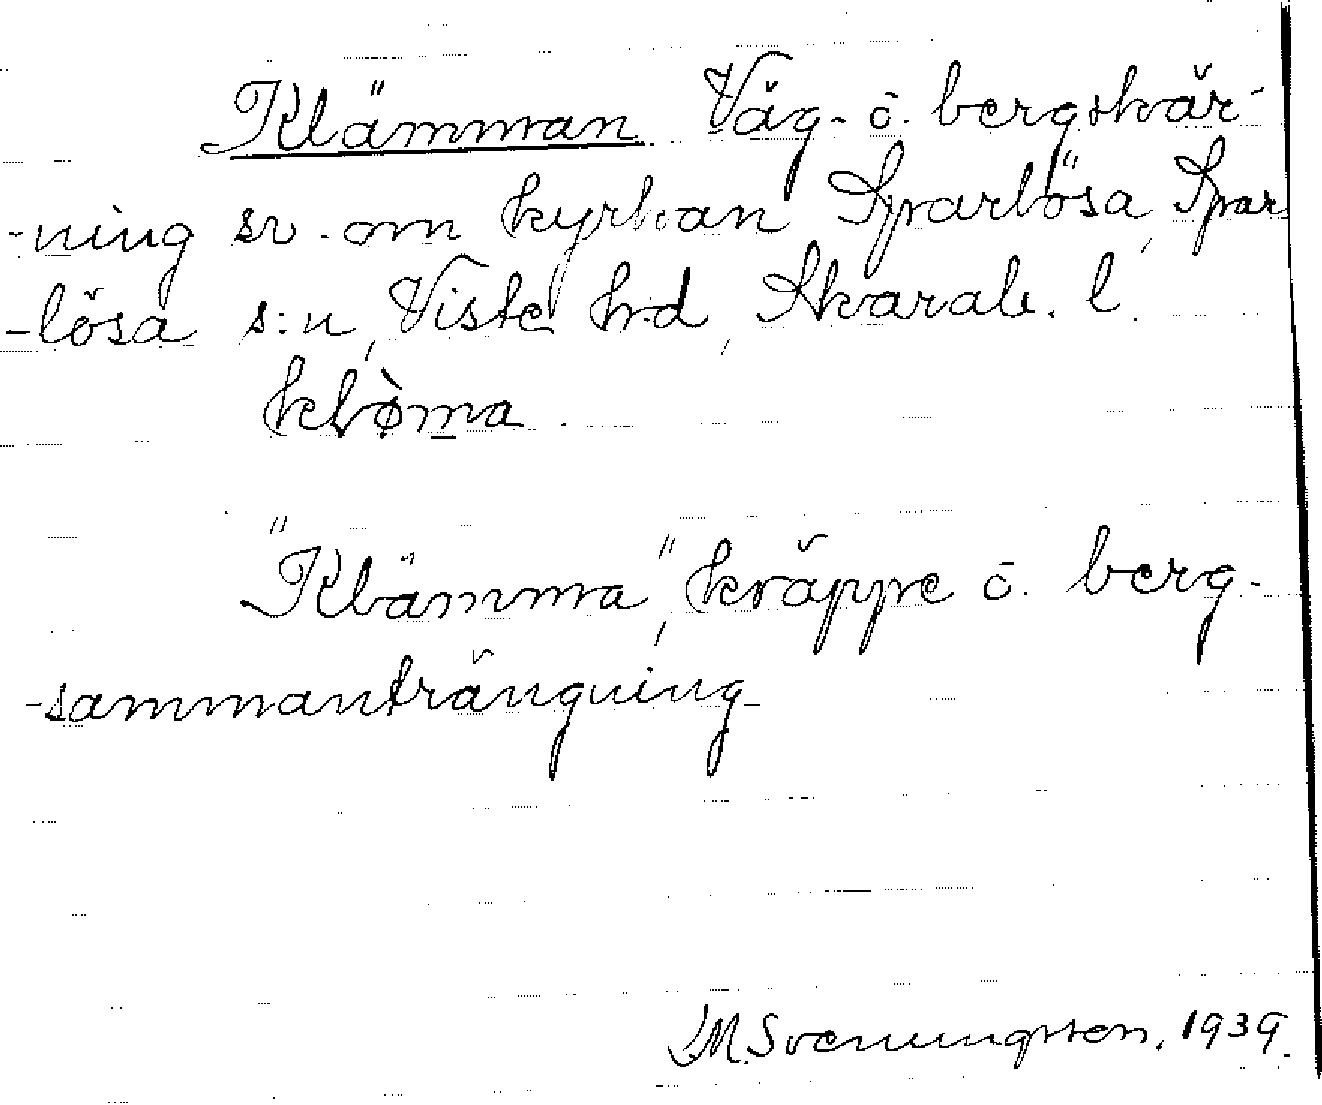 Klämman Väg- o. bergskär-
-ning sv. om kyrkan Sparlösa, Spar-
-lösa s:n, Viste hd, Skarab. l.
klø̀ma.
"Klämma", kräppe o. berg-
-sammanträngning
M. Svenungsson. 1939.